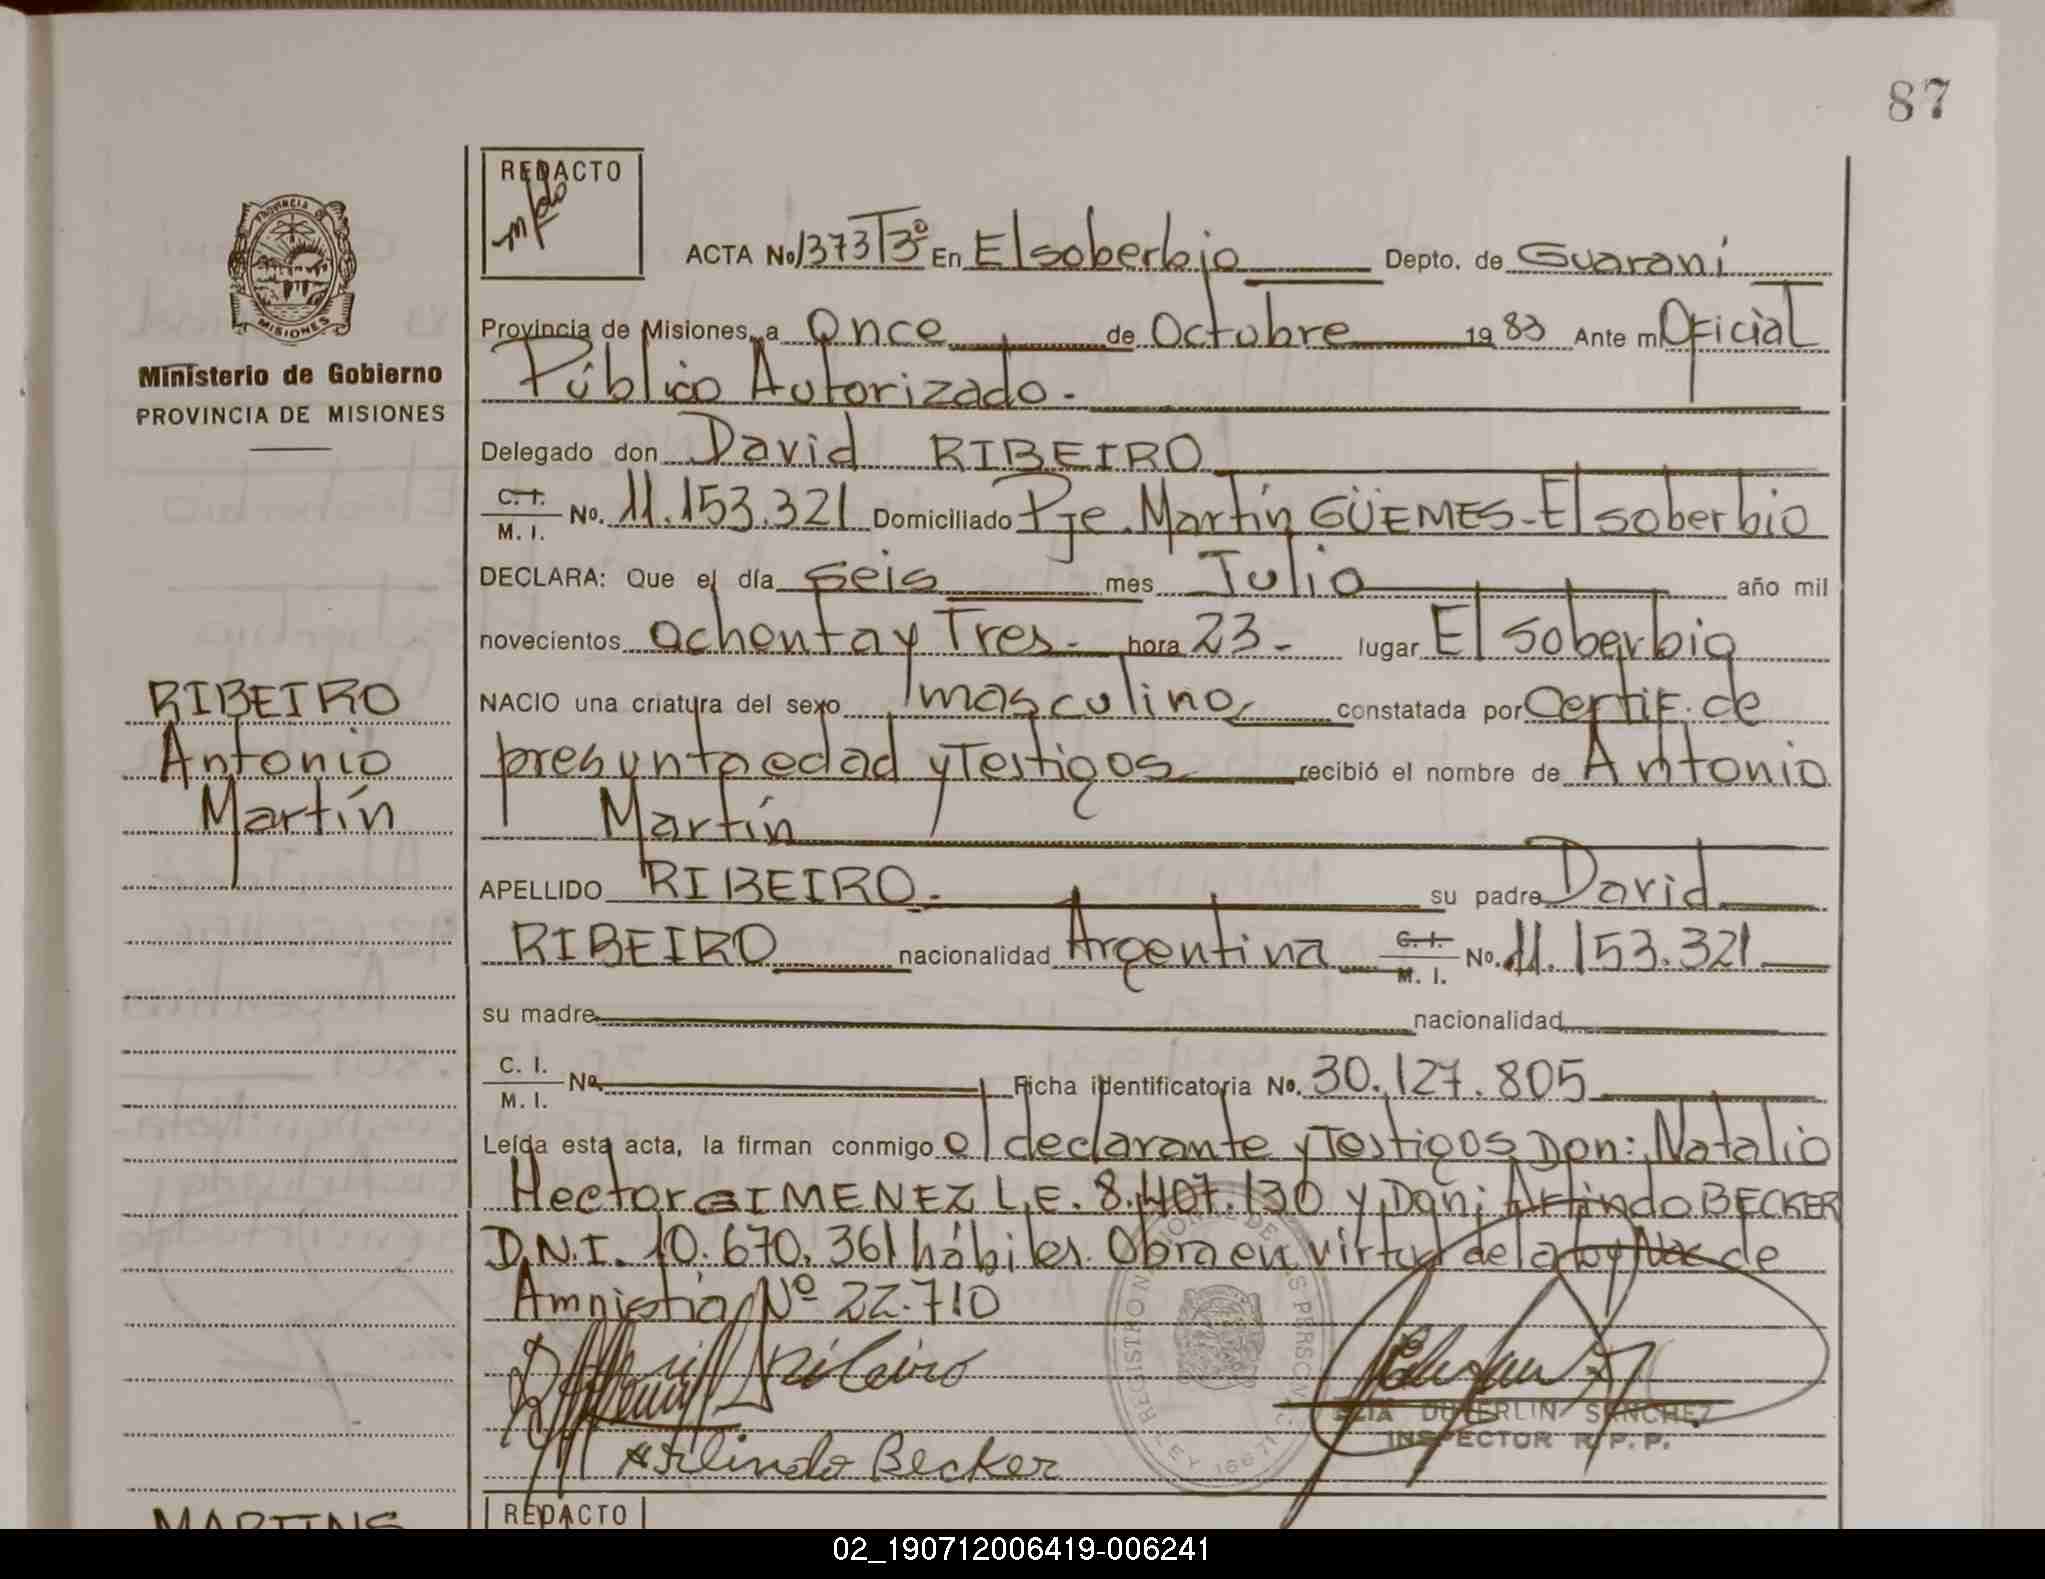 87
REDACTO
ACTA No 1373 T3º En El soberbio Depto. de Guaraní
PROVINCIA DE MISIONES
Provincia de Misiones, a Once de Octubre 1983 Ante mí Oficial
Público Autorizado.-
Ministerio de Gobierno
PROVINCIA DE MISIONES
Delegado don David RIBEIRO
C. I. M. I. No. 11.153.321 Domiciliado Pje. Martín GÜEMES-El soberbio
DECLARA: Que el día seis mes Julio año mil
novecientos ochenta y Tres.- hora 23- lugar El soberbio
NACIO una criatura del sexo masculino, constatada por Certif. de
presunta edad y Testigos recibió el nombre de Antonio
Martín
RIBEIRO
Antonio
Martín
APELLIDO RIBEIRO.- su padre David
RIBEIRO nacionalidad Argentina C. I. M. I. No. 11.153.321
su madre nacionalidad
C. I. M. I. No. Ficha identificatoria No. 30.127.805
Leída esta acta, la firman conmigo el declarante y Testigos Don: Natalio
Hector GIMENEZ L.E. 8.407.130 y Don: Arlindo BECKER
D.N.I. 10.670.361 hábiles. Obra en virtud de la Ley Nac de
Amnistía Nº 22.710
Ribeiro
Arlindo Becker
SANCHEZ
INSPECTOR R.P.P.
REDACTO
MARTINS
02_190712006419-006241